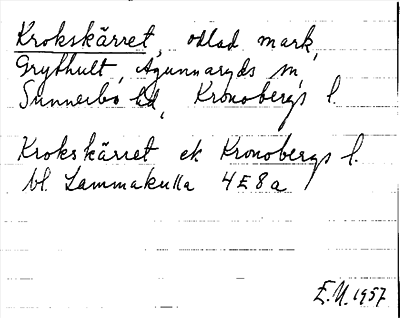 Krokskärret, odlad mark,
Grythult, Agunnaryds sn,
Sunnerbo hd, Kronobergs l.
Krokskärret ek Kronobergs l.
bl. Lammakulla 4E8a
E.U. 1957